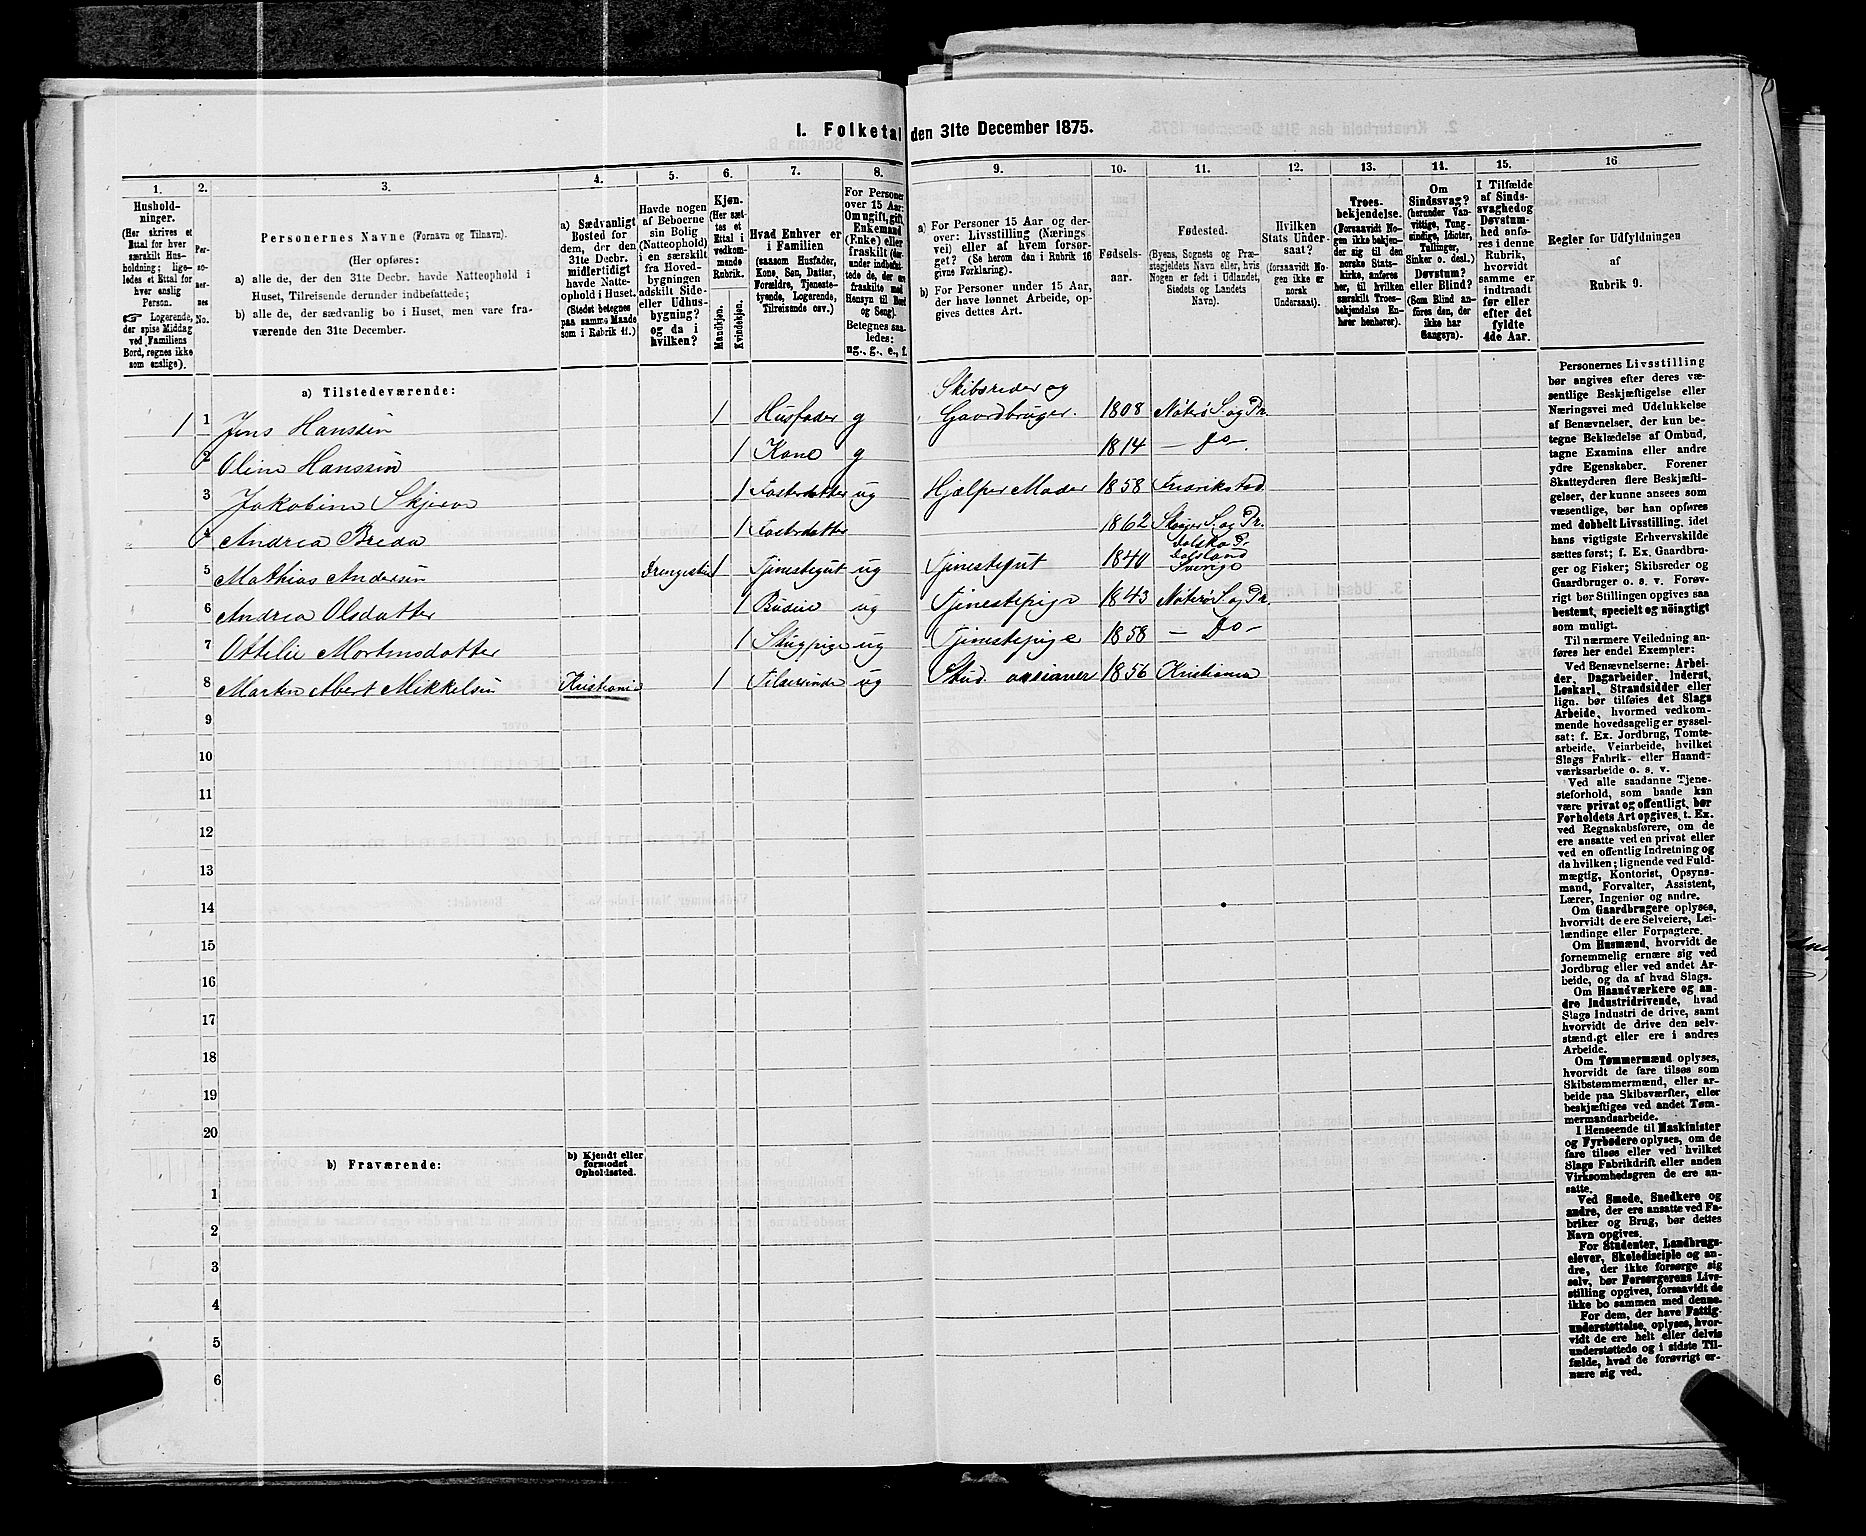 1. Folketal den 31te December 1875.
1. 2. 3. 4. 5. 6. 7. 8. 9. 10. 11. 12. 13. 14. 15. 16
Husholdninger.
(Her skrives et
Ettal for hver
særskilt Husholdning;
ligeledes et Ettal for
hver enslig
Person.
☞ Logerende,
der spise Middag
ved Familiens
Bord, regnes ikke
som enslige).
Personernes No.
Personernes Navne (Fornavn og Tilnavn).
(Her opføres:
a) alle de, der den 31te Decbr. havde Natteophold i
Huset, Tilreisende derunder indbefattede;
b) alle de, der sædvanlig bo i Huset, men vare fraværende
den 31te December.
a) Sædvanligt
Bosted for
dem, der den
31te Decbr.
midlertidigt
havde Natteophold
i Huset.
(Stedet betegnes
paa samme Maade
som i Rubrik 11.)
Havde nogen
af Beboerne
sin Bolig
(Natteophold)
i en særskilt
fra Hovedbygningen
adskilt Side-
eller Udhusbygning?
og da i
hvilken?
Kjøn.
(Her sættes
et
Ettal i
vedkommende
Rubrik.
Mandkjøn.
Kvindekjøn.
Hvad Enhver er
i Familien
(saasom Husfader,
Kone, Søn, Datter,
Forældre, Tjenestetyende,
Logerende,
Tilreisende osv.)
For Personer
over 15 Aar:
Om ugift, gift,
Enkemand
(Enke) eller
fraskilt
Betegnes saaledes:
ug., g., e., f.
a) For Personer 15 Aar og derover:
Livsstilling (Næringsvei)
eller af hvem forsørget?
(Se herom den i Rubrik 16
givne Forklaring).
b) For Personer under 15 Aar,
der have lønnet Arbeide, opgives
dettes Art.
Fødselsaar.
Fødested.
(Byens, Sognets og Præstegjeldets
Navn eller, hvis
Nogen er født i Udlandet,
Stedets og Landets
Navn).
Hvilken
Stats Undersaat?
(forsaavidt Nogen
ikke er
norsk
Undersaat).
Troesbekjendelse.
(Forsaavidt Nogen
ikke bekjender
sig til den
norske Statskirke,
anføres
her, til hvilken
særskilt Troesbekjendelse
Enhver
henhører).
Om
Sindssvag?
(herunder Vanvittige,
Tungsindige,
Idioter,
Tullinger,
Sinker o. desl.)
Døvstum?
eller Blind?
(Som Blind anføres
den, der
ikke har
Gangsyn).
I Tilfælde
af Sindssvaghed
og
Døvstumhed
anføres
i denne
Rubrik,
hvorvidt
samme er
indtraadt
før eller
efter det
fyldte
4de Aar.
Regler for Udfyldningen
af
Rubrik 9.
a) Tilstedeværende:
1 1 Jens Hanssen 1 Husfader g Skibsreder og
Gaardbruger. 1808 Nøterø S. og Pr.
2 Oline Hanssen 1 Kone g 1814 — Do —
3 Jakobine Skjerve 1 Fosterdatter ug Hjælper Moder 1858 Fredrikstad
4 Andrea Breda 1 Fosterdatter 1862 S. og Pr.
5 Mathias Andersen 1 Tjenestegut ug Tjenestegut 1840 Dalsland
Sverige
6 Andrea Olsdatter 1 Budeie ug Tjenestepige 1843 Nøterø S. og Pr.
7 Ottilie Mortensdatter 1 ug Tjenestepige 1858 — Do —
8 Martin Abert Mikkelsen Kristiania 1 Tilreisende ug Stud. 1856 Kristiania
9
10
11
12
13
14
15
16
17
18
19
20
b) Fraværende: b) Kjendt eller
formodet
Opholdssted.
1
2
3
4
5
6
Personernes Livsstilling
bør angives efter deres væsentlige
Beskjæftigelse eller
Næringsvei med Udelukkelse
af Benævnelser, der kun betegne
Beklædelse af Ombud,
tagne Examina eller andre
ydre Egenskaber. Forener
Skatteyderen flere Beskjæftigelser,
der kunne ansees som
væsentlige, bør han opføres
med dobbelt Livsstilling, idet
hans vigtigste Erhvervskilde
sættes først; f. Ex. Gaardbruger
og Fisker; Skibsreder og
Gaardbruger o. s. v. Forøvrigt
bør Stillingen opgives saa
bestemt, specielt og nöiagtigt
som muligt.
Til nærmere Veiledning anføres
her endel Exempler:
Ved Benævnelserne: Arbeider,
Dagarbeider, Inderst,
Løskarl, Strandsidder eller
lign. bør tilføies det Slags
Arbeide, hvormed vedkommende
hovedsagelig er sysselsat;
f. Ex. Jordbrug, Tomtearbeide,
Veiarbeide, hvilket
Slags Fabrik- eller Haandværksarbeide
o. s. v.
Ved alle saadanne Tjenesteforhold,
som baade kan
være privat og offentligt, bør
Forholdets Art opgives, t. Ex.
ved Regnskabsførere, om de
ere ansatte ved en privat eller
ved en offentlig Indretning og
da hvilken; lignende ved Fuldmægtig,
Kontorist, Opsynsmand,
Forvalter, Assistent,
Lærer, Ingeniør og andre.
Om Gaardbrugere oplyses,
hvorvidt de ere Selveiere, Leilændinge
eller Forpagtere.
Om Husmænd, hvorvidt de
fornemmelig ernære sig ved
Jordbrug eller ved andet Arbeide,
og da af hvad Slags.
Om Haandværkere og andre
Industridrivende, hvad
Slags Industri de drive, samt
hvorvidt de drive den selvstænd.gt
eller ere i andres
Arbeide.
Om Tømmermænd oplyses,
hvorvidt de fare tilsøs som
Skibstømmermænd, eller arbeide
paa Skibsværfter, eller
beskjæftiges ved andet Tømmermandsarbeide.
I Henseende til Maskinister
og Fyrbødere oplyses, om de
fare tilsøs eller ved hvilket
Slags Fabrikdrift eller anden
Virksomhedsgren de ere ansatte.
Ved Smede, Snedkere og
andre, der ere ansatte ved Fabriker
og Brug, bør dettes
Navn opgives.
For Studenter, Landbrugselever,
Skoledisciple og andre,
der ikke forsørge sig
selv, bør Forsørgerens Livsstilling
opgives, forsaavidt de
ikke bo sammen med denne.
For dem, der have Fattigunderstøttelse,
oplyses, hvorvidt
de ere helt eller delvis
understøttede og i sidste Tilfælde,
hvad de forøvrigt ernære
sig ved.